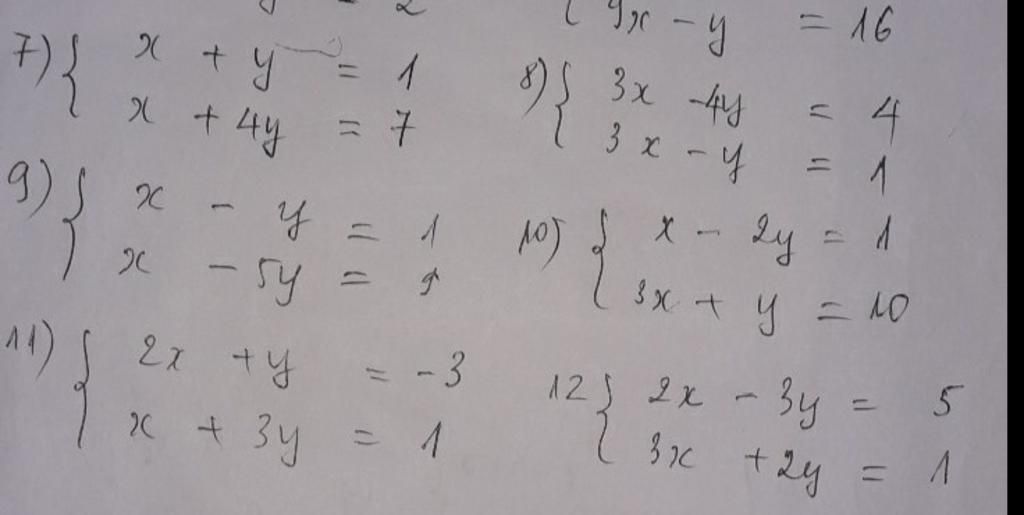 = 2
9x - y = 16
7) { x + y = 1
x + 4y = 7
8) { 3x - 4y = 4
3x - y = 1
9) { x - y = 1
x - 5y =
10) { x - 2y = 1
3x + y = 10
11) { 2x + y = -3
x + 3y = 1
12 { 2x - 3y = 5
3x + 2y = 1